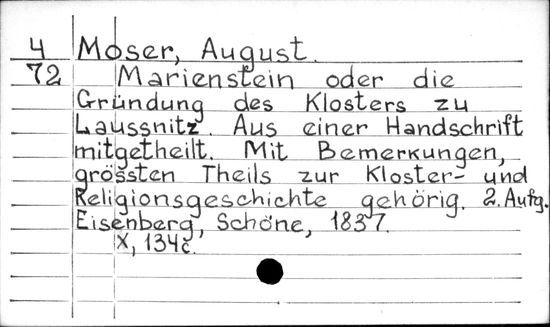 4 Moser, August.
72 Marienstein oder die
Gründung des Klosters zu
Laussnitz. Aus einer Handschrift
mitgetheilt. Mit Bemerkungen,
grössten Theils zur Kloster- und
Religionsgeschichte gehörig. 2. Aufg.
Eisenberg, Schöne, 1837.
X, 134c.